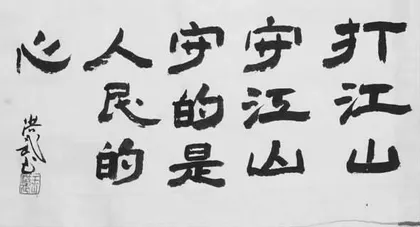 打江山
守江山
守的是
人民的
心